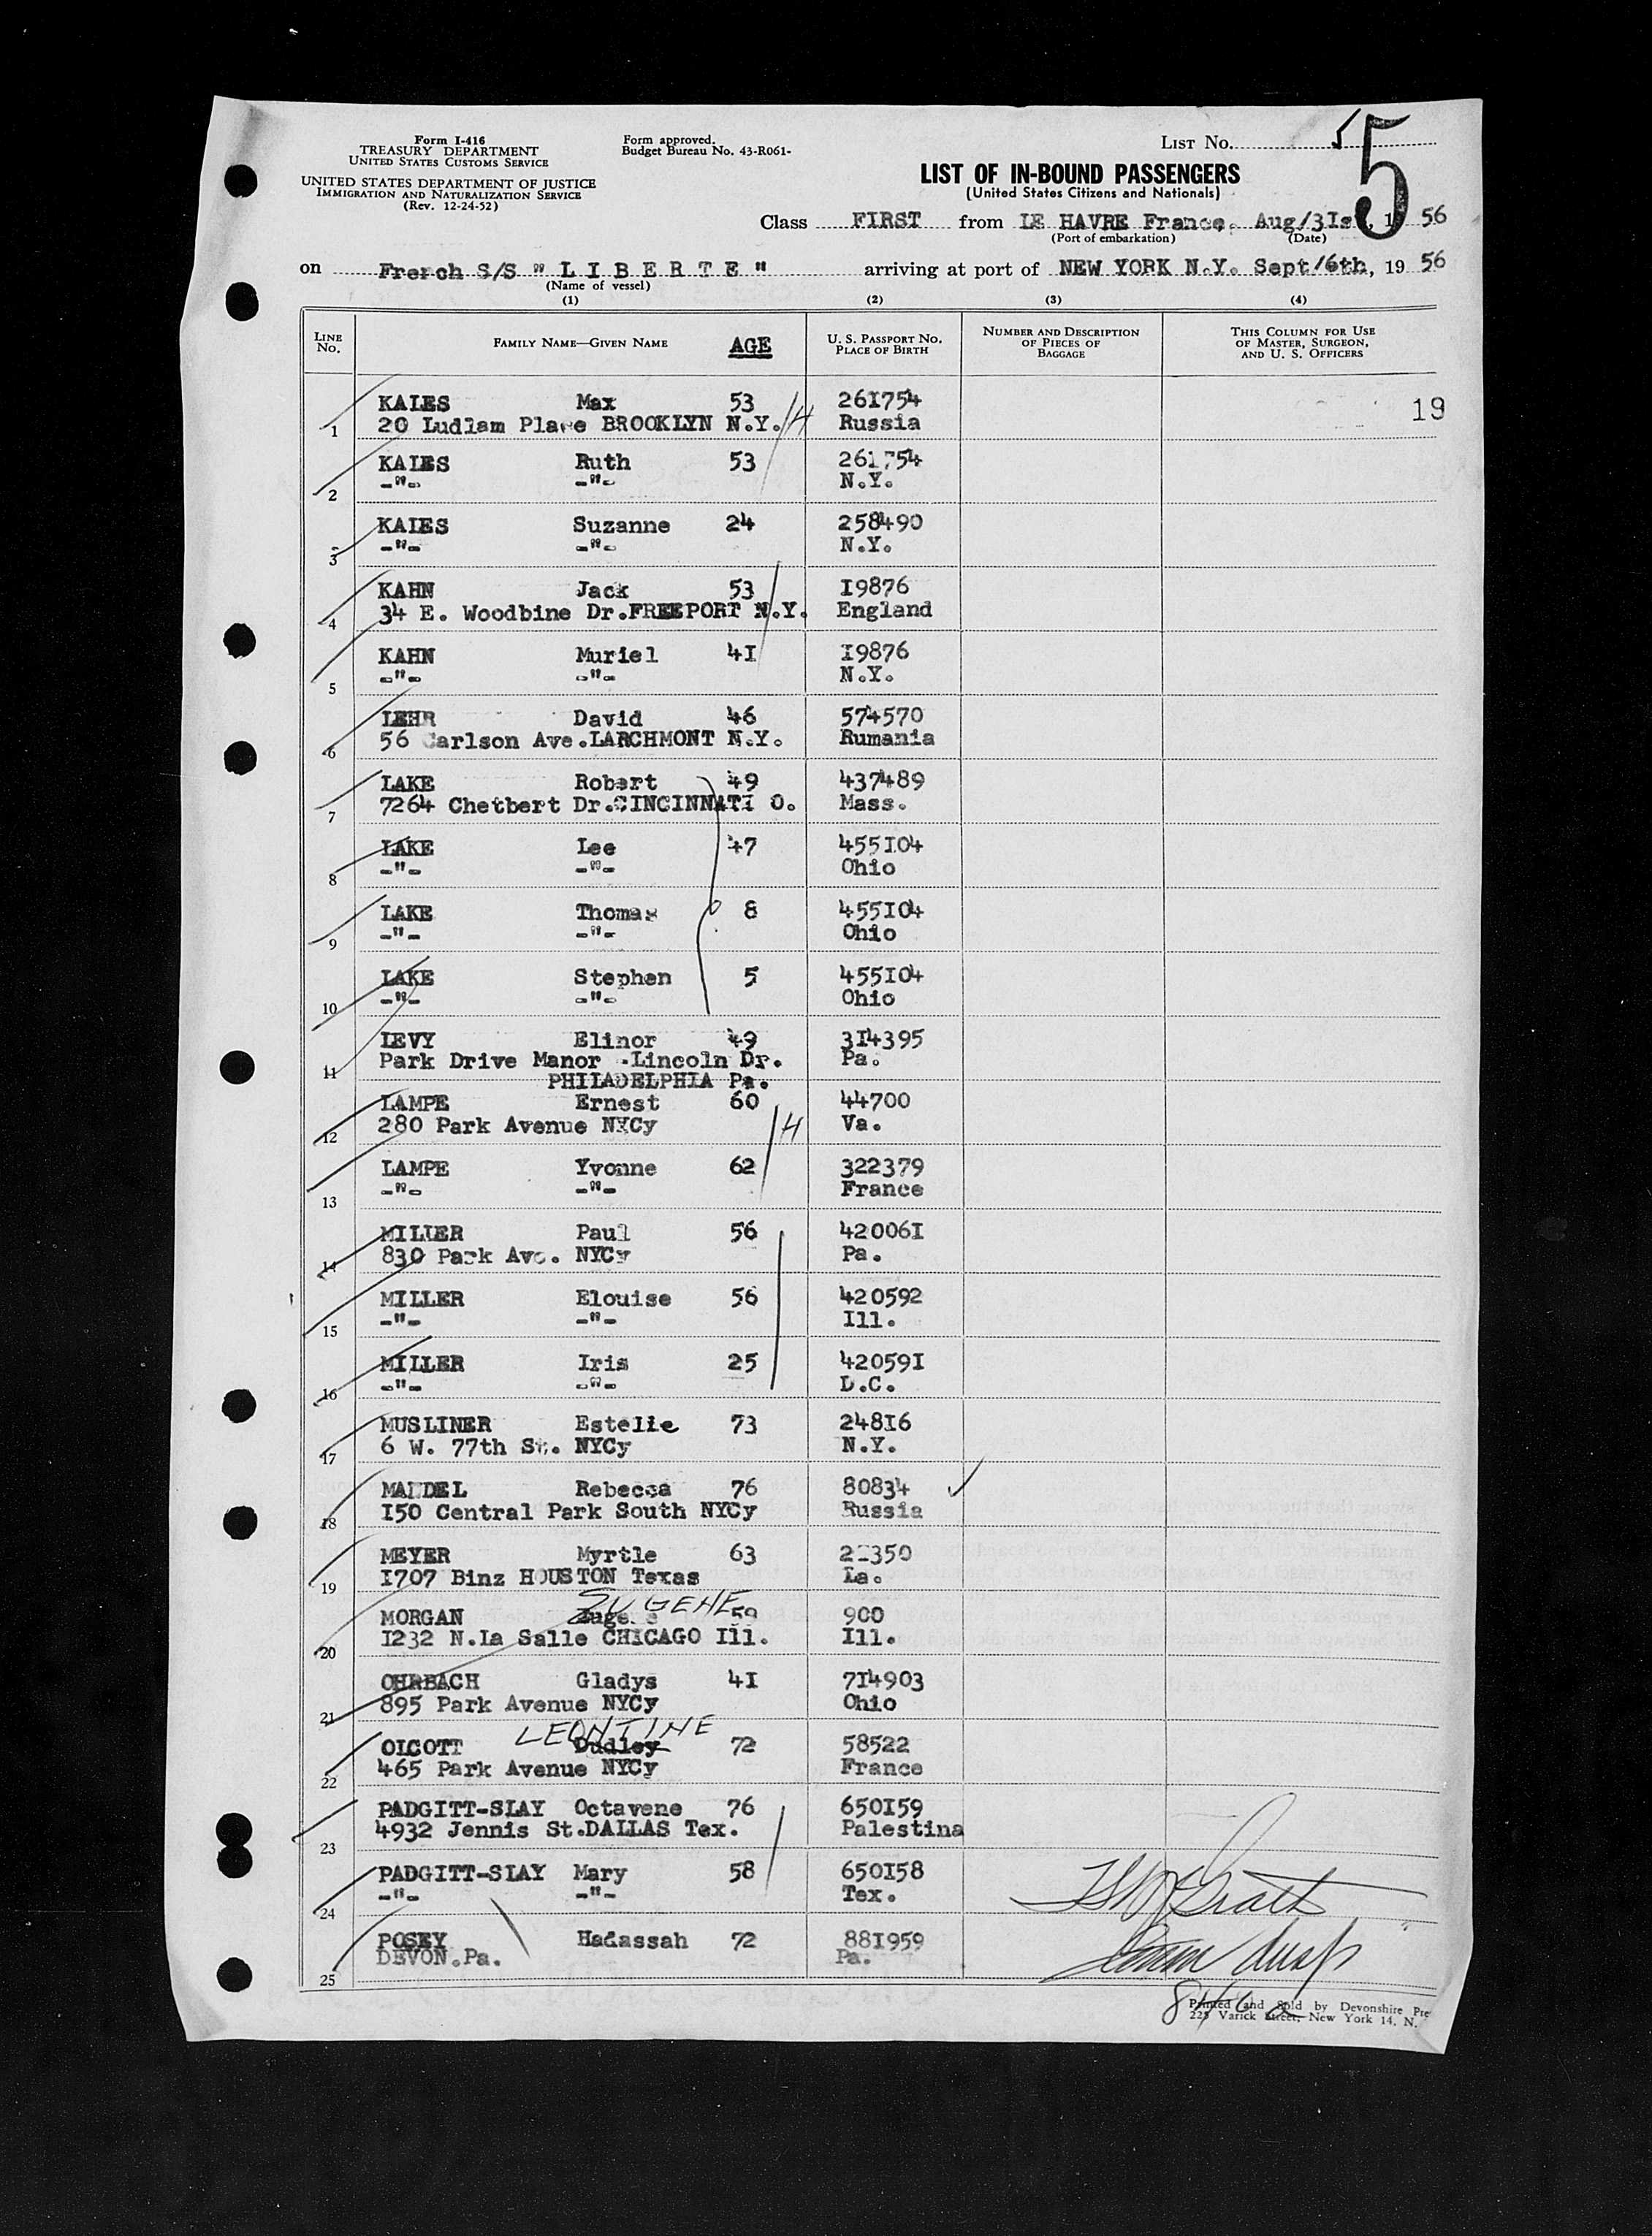 Form I-416
TREASURY DEPARTMENT
UNITED STATES CUSTOMS SERVICE
UNITED STATES DEPARTMENT OF JUSTICE
IMMIGRATION AND NATURALIZATION SERVICE
(Rev. 12-24-52)
Form approved.
Budget Bureau No. 43-R061-
LIST No. 5
5
LIST OF IN-BOUND PASSENGERS
(United States Citizens and Nationals)
Class FIRST from LE HAVRE France. Aug/3Ist, 1956
(Port of embarkation) (Date)
on French S/S "LIBERTE" arriving at port of NEW YORK N.Y. Sept/6th, 1956
(Name of vessel)
(1) (2) (3) (4)
LINE No. FAMILY NAME—GIVEN NAME AGE U. S. PASSPORT NO. PLACE OF BIRTH NUMBER AND DESCRIPTION OF PIECES OF BAGGAGE THIS COLUMN FOR USE OF MASTER, SURGEON, AND U. S. OFFICERS
KALES Max 53 26I754 19
1 20 Ludlam Place BROOKLYN N.Y. H Russia
KALES Ruth 53 261754
2 -"- -"- N.Y.
KALES Suzanne 24 258490
3 -"- -"- N.Y.
KAHN Jack 53 I9876
4 34 E. Woodbine Dr.FREEPORT N.Y. England
KAHN Muriel 4I I9876
5 -"- -"- N.Y.
LEHR David 46 574570
6 56 Carlson Ave.LARCHMONT N.Y. Rumania
LAKE Robert 49 437489
7 7264 Chetbert Dr.CINCINNATI O. Mass.
LAKE Lee 47 455I04
8 -"- -"- Ohio
LAKE Thomas 8 455I04
9 -"- -"- Ohio
LAKE Stephen 5 455I04
10 -"- -"- Ohio
LEVY Elinor 49 3I4395
11 Park Drive Manor -Lincoln Dr. Pa.
PHILADELPHIA Pa.
LAMPE Ernest 60 44700
12 280 Park Avenue NYCy H Va.
LAMPE Yvonne 62 322379
13 -"- -"- France
MILLER Paul 56 42006I
14 830 Park Ave. NYCy Pa.
MILLER Elouise 56 420592
15 -"- -"- Ill.
MILLER Iris 25 42059I
16 -"- -"- D.C.
MUSLINER Estelle 73 248I6
17 6 W. 77th St. NYCy N.Y.
MANDEL Rebecca 76 80834
18 I50 Central Park South NYCy Russia
MEYER Myrtle 63
19 I707 Binz HOUSTON Texas La.
EUGENE
MORGAN Eugene 59 900
20 I232 N.La Salle CHICAGO Ill. Ill.
OHRBACH Gladys 4I 7I4903
21 895 Park Avenue NYCy Ohio
LEONTINE
OLCOTT Dudley 72 58522
22 465 Park Avenue NYCy France
PADGITT-SLAY Octavene 76 650I59
23 4932 Jennis St.DALLAS Tex. Palestina
PADGITT-SLAY Mary 58 650I58
24 -"- -"- Tex.
POSEY Hadassah 72 88I959
25 DEVON.Pa. Pa.
Printed and Sold by Devonshire Pre
225 Varick Street, New York 14, N.